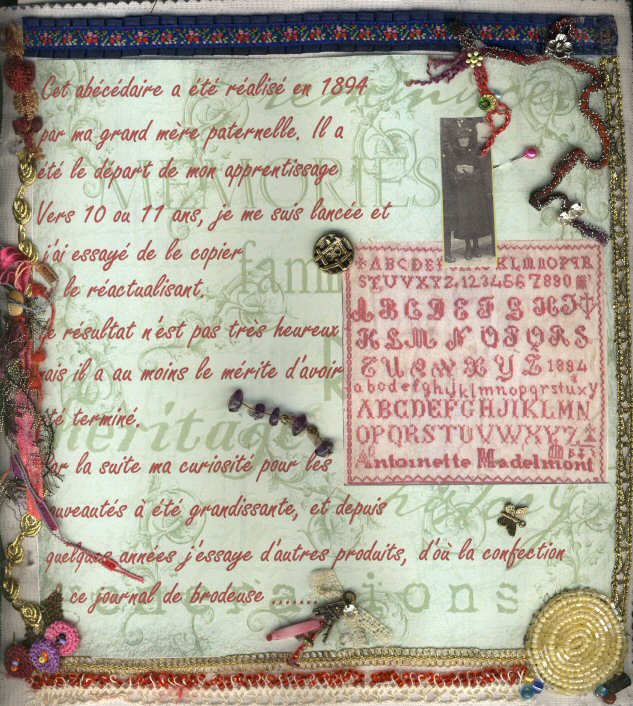 Cet abécédaire a été réalisé en 1894
par ma grand mère paternelle. Il a
été le départ de mon apprentissage
Vers 10 ou 11 ans, je me suis lancée et
j'ai essayé de le copier
le réactualisant.
résultat n'est pas très heureux
mais il a au moins le mérite d'avoir
été terminé.
Par la suite ma curiosité pour les
nouveautés à été grandissante, et depuis
quelques années j'essaye d'autres produits, d'où la confection
ce journal de brodeuse .......
MEMORIES
fami
héritage
history
generations
ABCDEF KLMNOPQR
STUVXYZ,1234567890
ABCDEFGHIJ
KLMNOPQRS
TUVWXYZ 1894
abcdefghijklmnopqrstuxy
ABCDEFGHJIJKLMN
OPQRSTUVWXYZ
Antoinette Madelmont